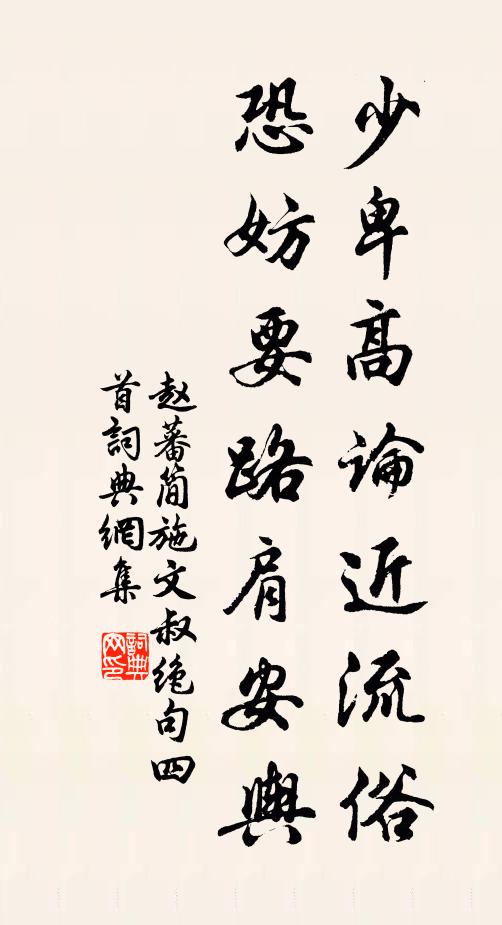 少卑高論近流俗
恐妨要路肩安輿
赵蕃简施文叔绝句四
首詞典網集
詞典
网印